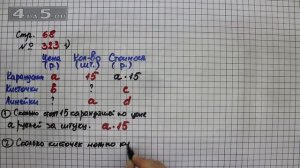 4 а 5
Стр. 68
№ 323 1)
Цена Кол-во Стоимость
(р.) (шт.) (р.)
Карандаши а 15 а · 15
Кисточки в ? с
Линейки ? а d
① Сколько стоят 15 карандашей по цене
а рублей за штуку. а · 15
② Сколько кисточек можно ку